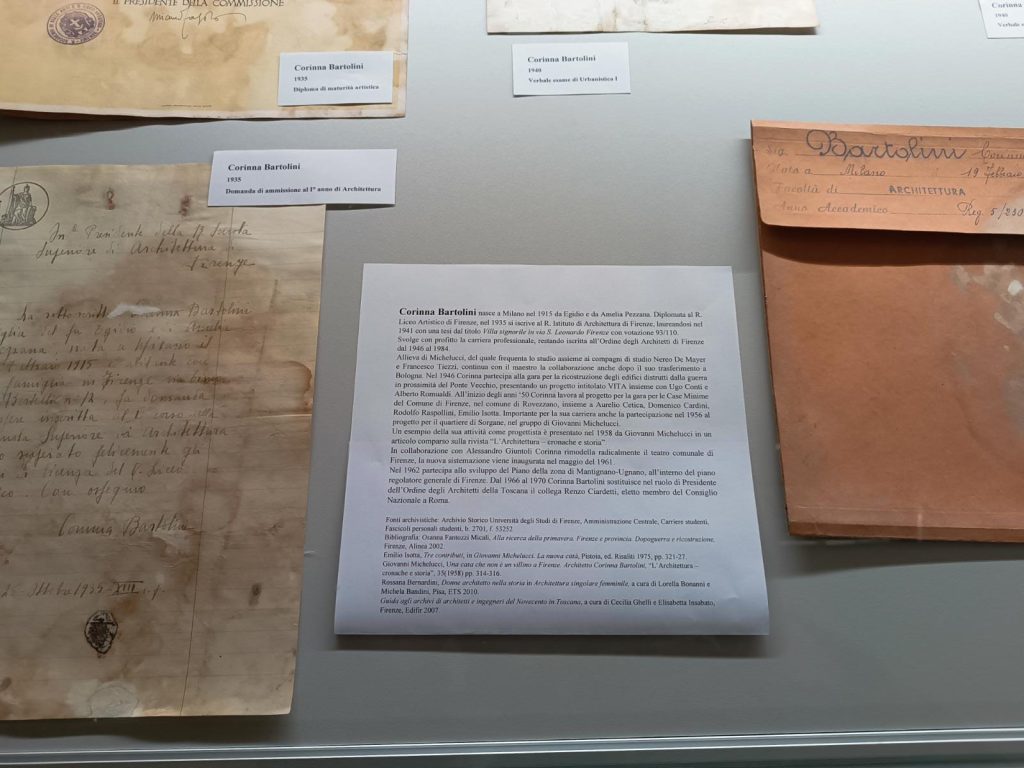 IL PRESIDENTE DELLA COMMISSIONE
Corinna Bartolini
1935
Diploma di maturità artistica
Corinna Bartolini
1940
Verbale esame di Urbanistica I
Corinna
1940
Verbale e
Corinna Bartolini
1935
Domanda di ammissione al I° anno di Architettura
Presidente della R Scuola
Superiore di Architettura
Firenze
La sottoscritta Corinna Bartolini
Architettura
Con ossequio
Corinna Bartolini
Ottobre 1935 - XIII
Bartolini
Nata a Milano 19 Febbraio
Facoltà di ARCHITETTURA
Anno Accademico Reg 5/230
Corinna Bartolini nasce a Milano nel 1915 da Egidio e da Amelia Pezzana. Diplomata al R.
Liceo Artistico di Firenze, nel 1935 si iscrive al R. Istituto di Architettura di Firenze, laureandosi nel
1941 con una tesi dal titolo Villa signorile in via S. Leonardo Firenze con votazione 93/110.
Svolge con profitto la carriera professionale, restando iscritta all'Ordine degli Architetti di Firenze
dal 1946 al 1984.
Allieva di Michelucci, del quale frequenta lo studio assieme ai compagni di studio Nereo De Mayer
e Francesco Tiezzi, continua con il maestro la collaborazione anche dopo il suo trasferimento a
Bologna. Nel 1946 Corinna partecipa alla gara per la ricostruzione degli edifici distrutti dalla guerra
in prossimità del Ponte Vecchio, presentando un progetto intitolato VITA insieme con Ugo Conti e
Alberto Romualdi. All'inizio degli anni '50 Corinna lavora al progetto per la gara per le Case Minime
del Comune di Firenze, nel comune di Rovezzano, insieme a Aurelio Cetica, Domenico Cardini,
Rodolfo Raspollini, Emilio Isotta. Importante per la sua carriera anche la partecipazione nel 1956 al
progetto per il quartiere di Sorgane, nel gruppo di Giovanni Michelucci.
Un esempio della sua attività come progettista è presentato nel 1958 da Giovanni Michelucci in un
articolo comparso sulla rivista "L'Architettura – cronache e storia".
In collaborazione con Alessandro Giuntoli Corinna rimodella radicalmente il teatro comunale di
Firenze, la nuova sistemazione viene inaugurata nel maggio del 1961.
Nel 1962 partecipa allo sviluppo del Piano della zona di Mantignano-Ugnano, all'interno del piano
regolatore generale di Firenze. Dal 1966 al 1970 Corinna Bartolini sostituisce nel ruolo di Presidente
dell'Ordine degli Architetti della Toscana il collega Renzo Ciardetti, eletto membro del Consiglio
Nazionale a Roma.
Fonti archivistiche: Archivio Storico Università degli Studi di Firenze, Amministrazione Centrale, Carriere studenti,
Fascicoli personali studenti, b. 2701, f. 53252.
Bibliografia: Osanna Fantozzi Micali, Alla ricerca della primavera. Firenze e provincia. Dopoguerra e ricostruzione,
Firenze, Alinea 2002.
Emilio Isotta, Tre contributi, in Giovanni Michelucci. La nuova città, Pistoia, ed. Risaliti 1975, pp. 321-27.
Giovanni Michelucci, Una casa che non è un villino a Firenze. Architetto Corinna Bartolini, "L'Architettura –
cronache e storia", 35(1958) pp. 314-316.
Rossana Bernardini, Donne architetto nella storia in Architettura singolare femminile, a cura di Lorella Bonanni e
Michela Bandini, Pisa, ETS 2010.
Guida agli archivi di architetti e ingegneri del Novecento in Toscana, a cura di Cecilia Ghelli e Elisabetta Insabato,
Firenze, Edifir 2007.